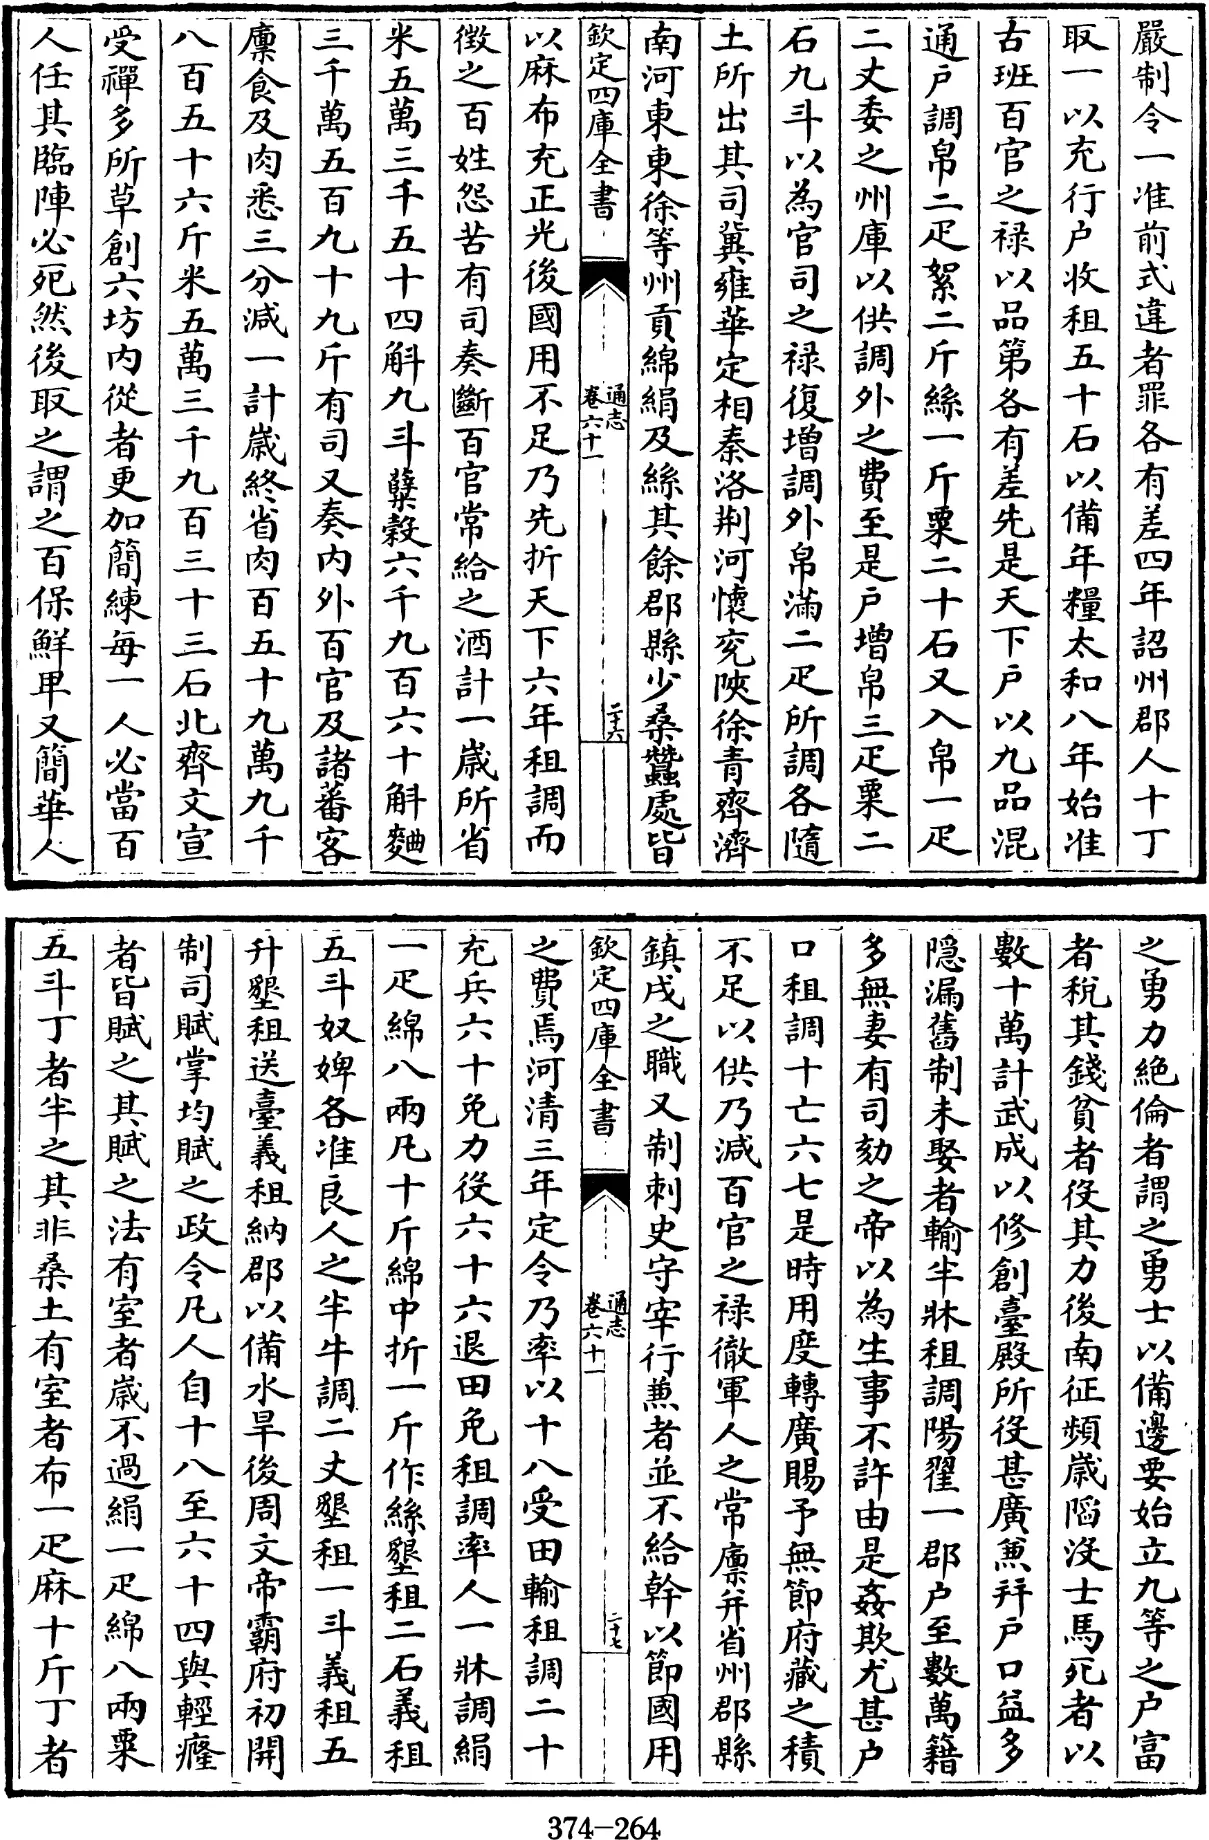 嚴制令一准前式違者罪各有差四年詔州郡人十丁
取一以充行户收租五十石以備年糧太和八年始准
古班百官之禄以品第各有差先是天下户以九品混
通户調帛二疋絮二斤絲一斤粟二十石又入帛一疋
二丈委之州庫以供調外之費至是户增帛三疋粟二
石九斗以為官司之禄復増調外帛滿二疋所調各隨
土所出其司冀雍華定相秦洛荆河懷兖陜徐青齊濟
南河東東徐等州貢綿絹及絲其餘郡縣少桑蠶處皆
欽定四庫全書
通志
卷六十一
二十六
以麻布充正光後國用不足乃先折天下六年租調而
徴之百姓怨苦有司奏斷百官常給之酒計一歳所省
米五萬三千五十四斛九斗糵穀六千九百六十斛麴
三千萬五百九十九斤有司又奏内外百官及諸蕃客
廪食及肉悉三分減一計歳終省肉百五十九萬九千
八百五十六斤米五萬三千九百三十三石北齊文宣
受禪多所草創六坊内從者更加簡練每一人必當百
人任其臨陣必死然後取之謂之百保鮮甲又簡華人
之勇力絶倫者謂之勇士以備邊要始立九等之户富
者税其錢貧者役其力後南征頻歳陷沒士馬死者以
數十萬計武成以修創臺殿所役甚廣兼并户口益多
隠漏舊制未娶者輸半牀租調陽翟一郡户至數萬籍
多無妻有司劾之帝以為生事不許由是姦欺尤甚户
口租調十亡六七是時用度轉廣賜予無節府藏之積
不足以供乃減百官之禄徹軍人之常廪并省州郡縣
鎮戍之職又制刺史守宰行兼者並不給幹以節國用
欽定四庫全書
通志
卷六十一
二十七
之費焉河清三年定令乃率以十八受田輸租調二十
充兵六十免力役六十六退田免租調率人一牀調絹
一疋綿八兩凡十斤綿中折一斤作絲墾租二石義租
五斗奴婢各准良人之半牛調二丈墾租一斗義租五
升墾租送臺義租納郡以備水旱後周文帝霸府初開
制司賦掌均賦之政令凡人自十八至六十四與輕癃
者皆賦之其賦之法有室者歳不過絹一疋綿八兩粟
五斗丁者半之其非桑土有室者布一疋麻十斤丁者
374-264